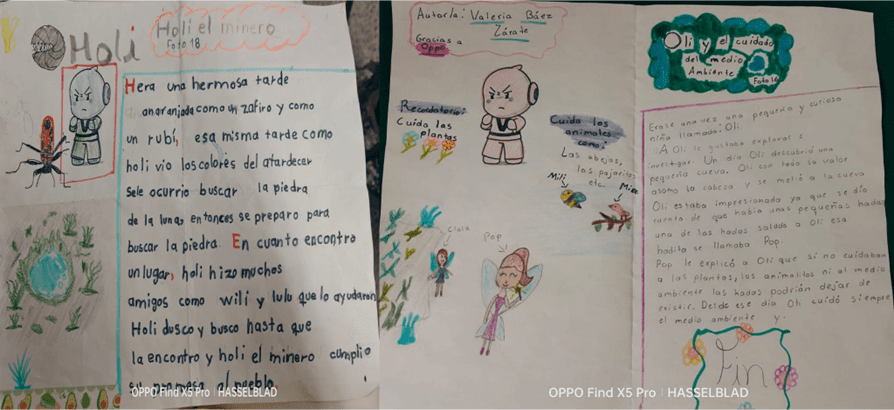 Holi
Holi el minero
Foto 18
Hera una hermosa tarde
anaranjada como un zafiro y como
un rubí, esa misma tarde como
holi vio los colores del atardecer
sele ocurrio buscar la piedra
de la luna, entonces se preparo para
buscar la piedra. En cuanto encontro
un lugar, holi hizo muchos
amigos como wili y lulu que lo ayudaron
Holi busco y busco hasta que
la encontro y holi el minero cumplio
su promesa al pueblo
OPPO Find X5 Pro | HASSELBLAD
Autor/a: Valeria Báez
Zárate
Gracias a
Oppo
Recordatorio:
Cuida las
plantas
Cuida los
animales
como:
Las abejas,
los pajaritos
etc.
Mili
Clala
Pop
Oli y el cuidado
del medio
Ambiente
Foto 16
Erase una vez una pequeña y curiosa
niña llamada: Oli
A Oli le gustaba explorar e
investigar. Un día Oli descubrió una
pequeña cueva. Oli con todo su valor
asomo la cabeza y se metió a la cueva
Oli estaba impresionada ya que se dio
cuenta de que había unas pequeñas hadas
una de las hadas saludo a Oli esa
hadita se llamaba Pop.
Pop le explicó a Oli que si no cuidaban
a las plantas, los animalitos ni al medio
ambiente las hadas podrían dejar de
existir. Desde ese día Oli cuidó siempre
el medio ambiente y.
Fin
OPPO Find X5 Pro | HASSELBLAD